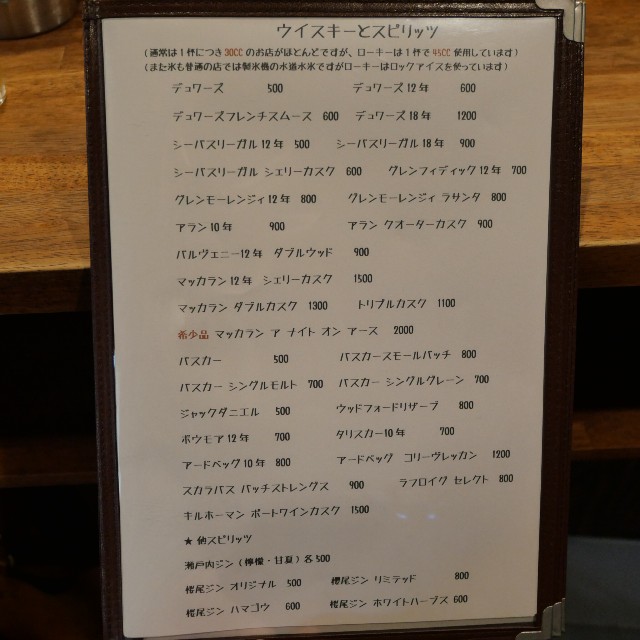 ウイスキーとスピリッツ
(通常は1杯につき30CCのお店がほとんどですが、ローキーは1杯で45CC使用しています)
(また氷も普通の店では製氷機の水道水氷ですがローキーはロックアイスを使っています)
デュワーズ 500 デュワーズ12年 600
デュワーズフレンチスムース 600 デュワーズ18年 1200
シーバスリーガル12年 500 シーバスリーガル18年 900
シーバスリーガル シェリーカスク 600 グレンフィディック12年 700
グレンモーレンジィ12年 800 グレンモーレンジィ ラサンタ 800
アラン10年 900 アラン クオーターカスク 900
バルヴェニー12年 ダブルウッド 900
マッカラン12年 シェリーカスク 1500
マッカラン ダブルカスク 1300 トリプルカスク 1100
希少品 マッカラン ア ナイト オン アース 2000
バスカー 500 バスカースモールバッチ 800
バスカー シングルモルト 700 バスカー シングルグレーン 700
ジャックダニエル 500 ウッドフォードリザーブ 800
ボウモア12年 700 タリスカー10年 700
アードベッグ10年 800 アードベッグ コリーヴレッカン 1200
スカラバス バッチストレングス 900 ラフロイグ セレクト 800
キルホーマン ポートワインカスク 1500
★他スピリッツ
瀬戸内ジン(檸檬・甘夏)各500
桜尾ジン オリジナル 500 桜尾ジン リミテッド 800
桜尾ジン ハマゴウ 600 桜尾ジン ホワイトハーブス 600